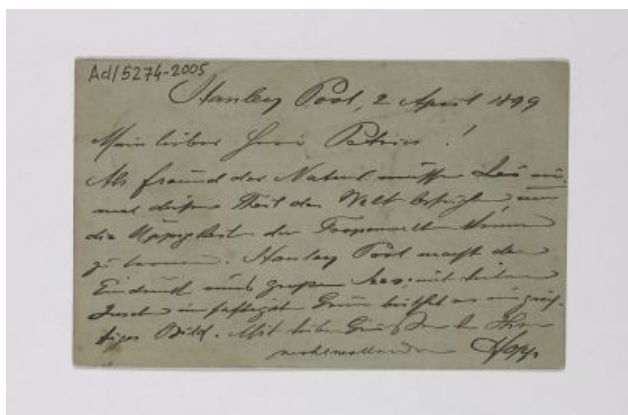 Ad/5274-2005
Stanley Pool, 2 April 1899
Mein lieber Herr Petrovics!
Als Freund der Natur müssen Sie ein-
mal diesen Theil der Welt besuchen um
die Üppigkeit der Tropenwelt kennen
zu lernen. Stanley Pool macht den
Eindruck eines großen Sees; mit seinen
Inseln im saftigsten Grün bildet es ein präch-
tiges Bild. Mit lieben Grüßen Ihr
Hopp